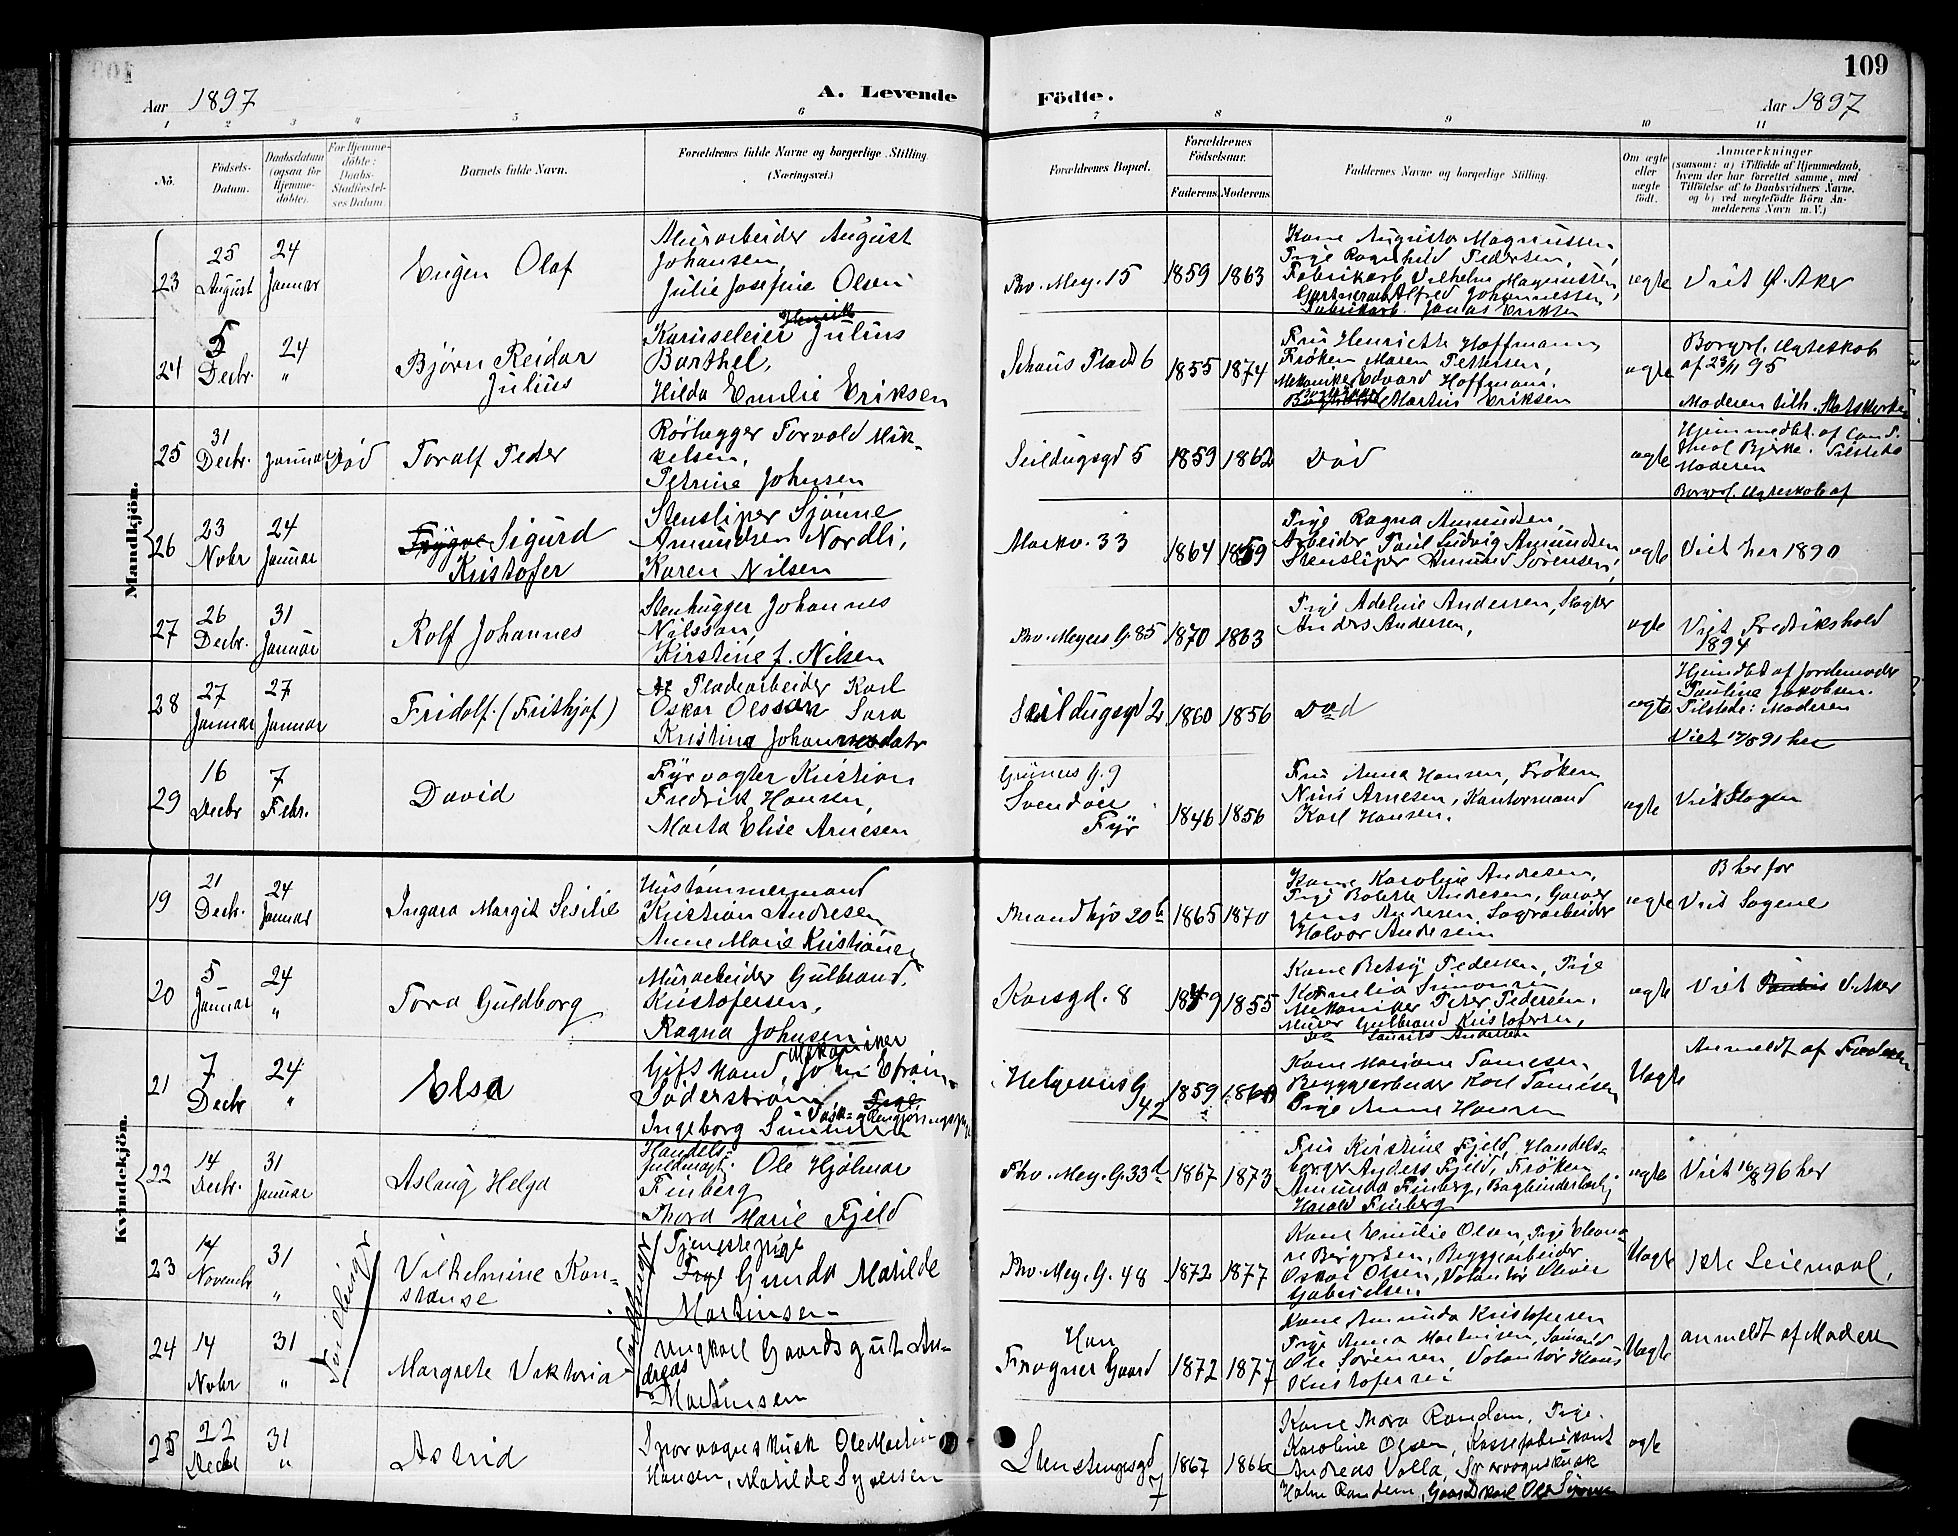 109
Aar 1897
A. Levende Födte.
Aar 1897
1 2 3 4 5 6 7 8 9 10 11
No.
Födsels-Datum.
Daabsdatum (ogsaa for Hjemme-döbte).
For Hjemme-döbte: Daabs-Stadfæstel-ses Datum.
Barnets fulde Navn.
Forældrenes fulde Navne og borgerlige Stilling
(Næringsvei.)
Forældrenes Bopæl.
Forældrenes Födselsaar.
Faderens Moderens
Faddernes Navne og borgerlige Stilling.
Om ægte eller uægte födt.
Anmærkninger
(saasom: a) i Tilfælde af Hjemmedaab,
hvem der har forrettet samme, med
Tilföielse af to Daabsvidners Navne,
og b) ved uægtefödte Börn An-
melderens Navn m. V.)
Mandkjön.
23
25 August
24 Januar
Eugen Olaf
Murarbeider August
Johansen,
Julie Josefine Olsen
Thv. Mey. 15
1859 1863
Kone Augusta Magnussen,
Pige Ragnhild Pedersen,
Fabrikarb. Vilhelm Magnussen,
Gartnerarb. Alfred Johannessen,
Fabrikarb. Jonas Eriksen
ægte
Viet Ø. Aker
24
5 Decbr.
24 "
Bjørn Reidar
Julius
Karuseleier Henrik Julius
Barthel,
Hilda Emilie Eriksen
Schous Plads 6
1855 1874
Fru Henriette Hoffmann,
Frøken Maren Pettersen,
Mekaniker Edvard Hoffmann,
Martin Eriksen
ægte
Borgerl. Ægteskab
af 23/11 95
Moderen tilh. Statskirken
25
31 Decbr.
Januar
Død
Toralf Peder
Rørlægger Torvald Mik-
kelsen,
Petrine Johnsen
Seildugsgd 5
1859 1862
Død
ægte
Hjemmedbt. af Cand.
theol Bjerke. Tilstede
Moderen
Borgerl. Ægteskab af
26
23 Novbr
24 Januar
Trygve Sigurd
Kristofer
Stensliper Sjønne
Amundsen Nordli,
Karen Nilsen
Markv. 33
1864 1859
Pige Ragna Amundsen,
Arbeider Paul Ludvig Amundsen
Stensliper Amund Sørensen,
ægte
Viet her 1890
27
26 Decbr.
31 Januar
Rolf Johannes
Stenhugger Johannes
Nilsson,
Kirstine f. Nilsen
Thv. Meyers G. 85
1870 1863
Pige Adeline Andersen, Slagter
Anders Andersen,
ægte
Viet Fredrikshald
1894
28
27 Januar
27 Januar
Fridolf. (Frithjof)
Pladearbeider Karl
Oskar Olsson Sara
Kristina Johannesdatr
Seildugsgd 2
1860 1856
Død
ægte
Hjemdbt af Jordemoder
Pauline Jakobsen.
Tilstede: Moderen
Viet 17/5 91 her
29
16 Decbr
7 Febr.
David
Fyrvogter Kristian
Fredrik Hansen,
Marta Elise Arnesen
Grüners G. 9
Svendøen
Fyr
1846 1856
Fru Anna Hansen, Frøken
Nini Arnesen, Kontormand
Karl Hansen.
ægte
Viet Slagen
Kvindekjön.
19
21 Decbr.
24 Januar
Ingara Margit Sesilie
Hustømmermand
Kristian Andresen
Anne Marie Kristiansen
Thrandhjv 20b
1865 1870
Kone Karoline Andresen,
Pige Bolette Andresen, Garver
Jens Andersen, Sagarbeider
Halvor Andersen
ægte
B her for
Viet Sagene
20
5 Januar
24 "
Tora Guldborg
Murarbeider Gulbrand
Kristofersen,
Ragna Johnsen
Korsgd. 8
1859 1855
Kone Betsy Pedersen, Pige
Kornelia Simonsen
Mekaniker Peter Pedersen,
Murer Gulbrand Kristofersen,
Laurits Andersen
ægte
Viet V. Aker
21
7 Decbr
24 "
Elsa
Gift Mand, Mekaniker John Efraim
Söderström
Vask- & Rengjøringspige
Ingeborg
Helgesens G
42
1859
Kone Mariane Tomesen
Byggearbeider Karl Tomesen
Pige Anna Hansen
Uægte
Anmeldt af Faderen
22
14 Decbr.
31 Januar
Aslaug Helga
Handels-
fuldmægt. Ole Hjalmar
Finberg
Thora Marie Fjeld
Thv. Mey. G. 33d
1867 1873
Fru Kirstine Fjeld, Handels-
borger Anders Fjeld, Frøken
Amunda Finberg, Bogbinderlærl
Harald Finberg
ægte
Viet 16/8 96 her
23
14 Novembr
31 "
Tvillinger
Vilhelmine Kon-
stanse
Tvillinger
Tjenestepige
Pige Gunda Matilde
Martinsen
Thv. Mey. G. 48
1872 1877
Kone Emilie Olsen, Pige Elvi-
re Bergersen, Byggearbeider
Oskar Olsen, Volontør Oliver
Gabrielsen.
Uægte
1ste Leiermaal,
24
14 Nobr
31 "
Margrete Viktoria
Ungkarl Gaardsgut An-
dreas
Martinsen
Han
Frogner Gaard
1872 1877
Kone Amunda Kristofersen
Pige Anna Martinsen, Sømand
Ole Sørensen, Volontør Klaus
Kristofersen
Uægte
anmeldt af Moderen
25
22 Decbr
31 "
Astrid
Sporvognskusk Ole Martin
Hansen, Matilde Syversen
Stenstrupsgd
7
1867 1866
Kone Thora Randem, Pige
Karoline Olsen, Kassefabrikant
Andreas Volla, Sporvognskusk
Halvor Randem, Gaardskarl Ole
ægte